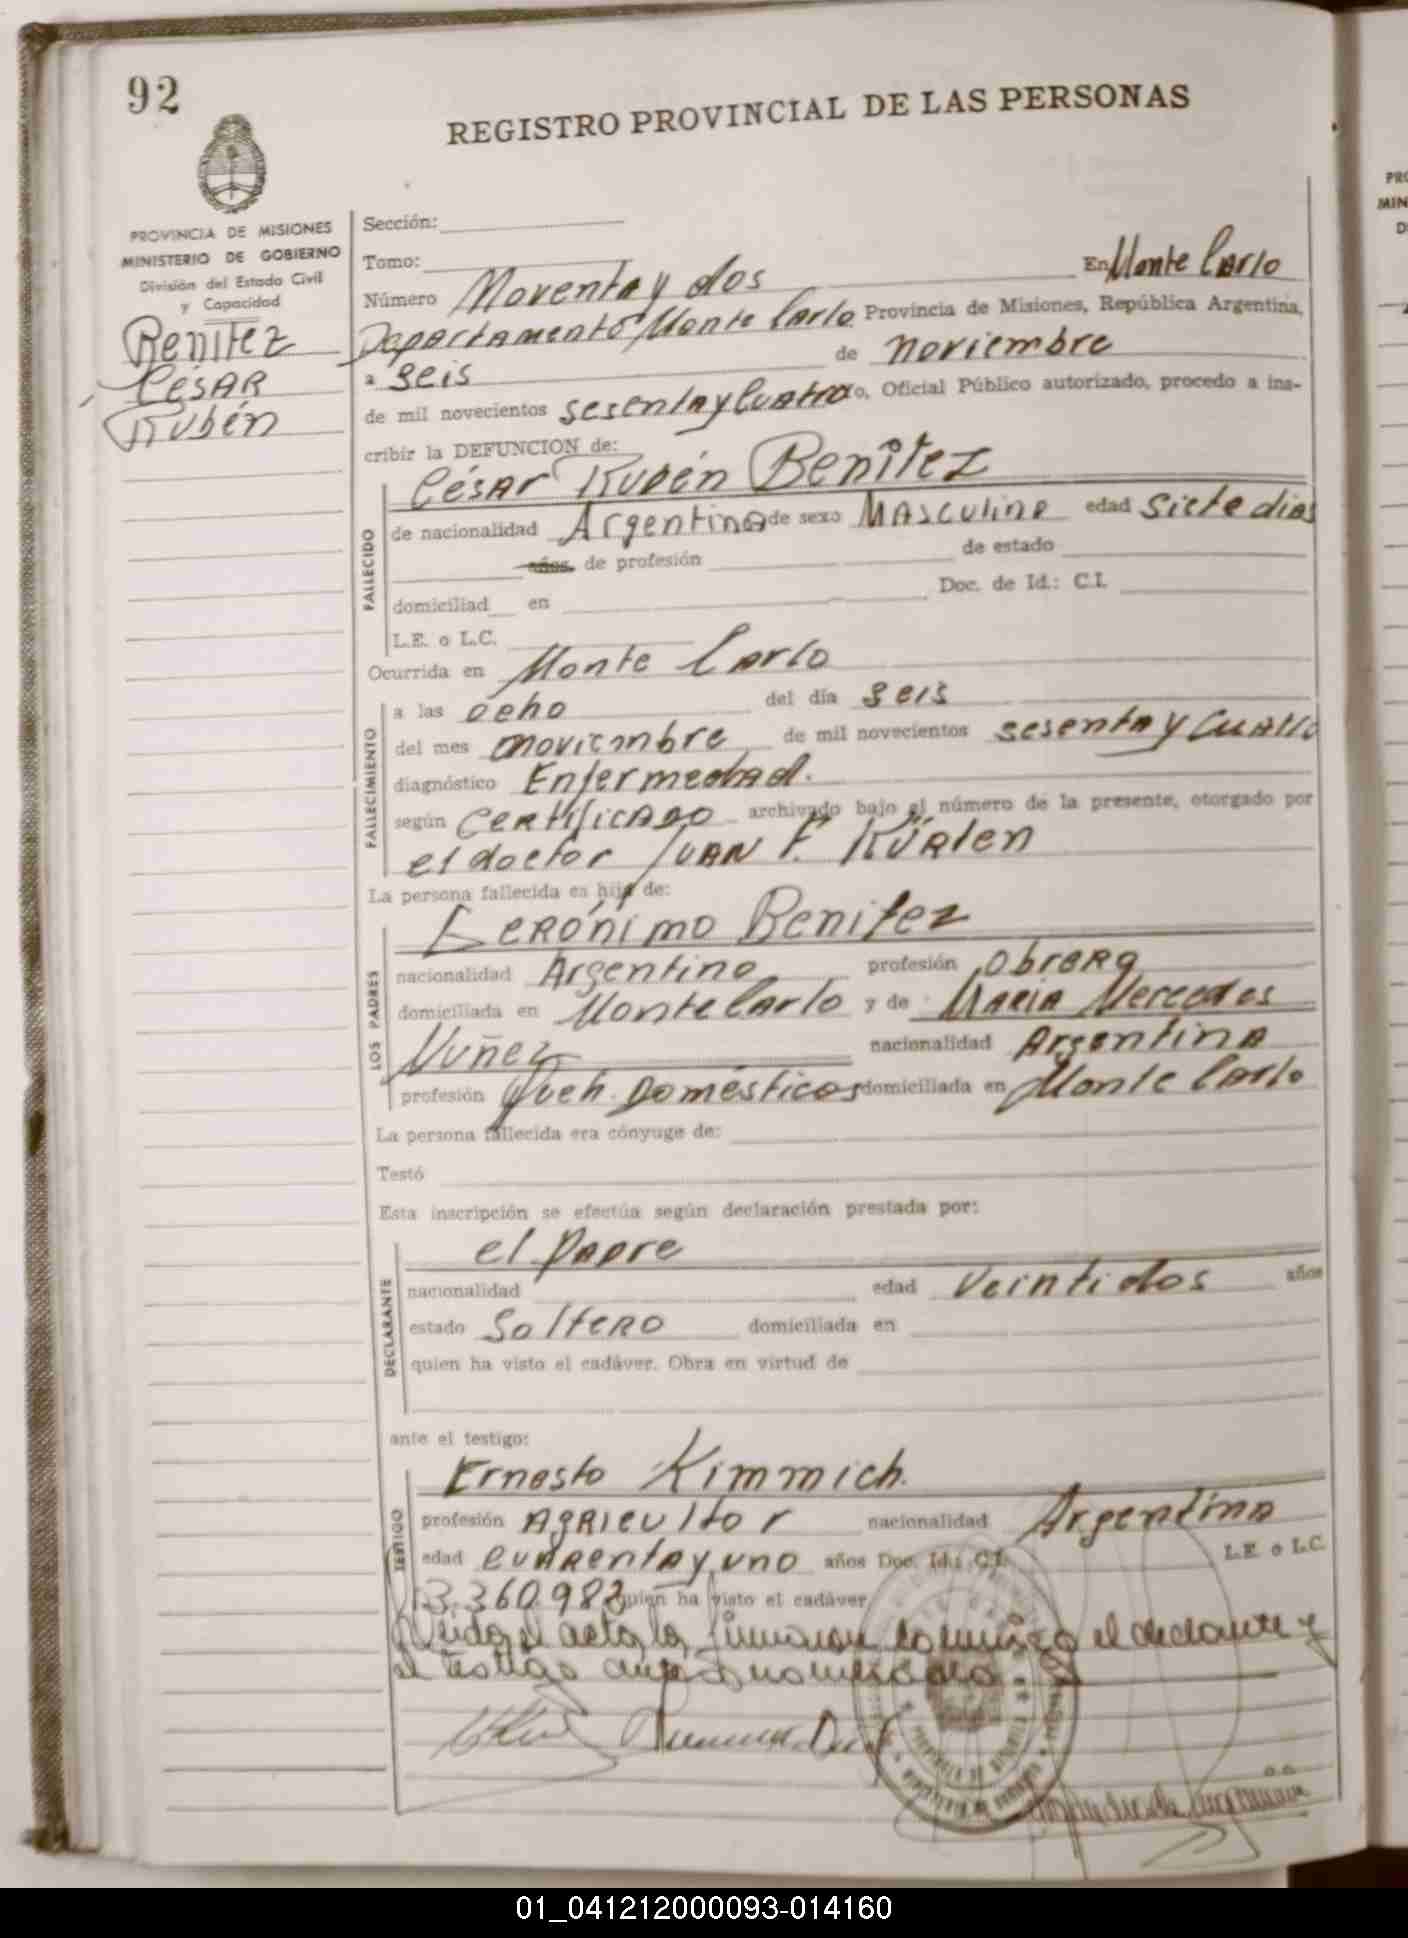 92
REGISTRO PROVINCIAL DE LAS PERSONAS
PROVINCIA DE MISIONES
MINISTERIO DE GOBIERNO
División del Estado Civil
y Capacidad
Benitez
César
Rubén
Sección:
Tomo:
Número Noventa y dos En Monte Carlo
Departamento Monte Carlo Provincia de Misiones, República Argentina,
a seis de noviembre
de mil novecientos sesenta y cuatro, Oficial Público autorizado, procedo a ins-
cribir la DEFUNCION de:
César Rubén Benitez
FALLECIDO
de nacionalidad Argentina de sexo Masculino edad siete dias
años de profesión de estado
domiciliad en Doc. de Id.: C.I.
L.E. o L.C.
Ocurrida en Monte Carlo
FALLECIMIENTO
a las ocho del día seis
del mes noviembre de mil novecientos sesenta y cuatro
diagnóstico Enfermedad.
según certificado archivado bajo el número de la presente, otorgado por
el doctor Juan F.
La persona fallecida es hijo de:
LOS PADRES
Gerónimo Benitez
nacionalidad Argentino profesión Obrero
domiciliada en Monte Carlo y de Maria Mercedes
Nuñez nacionalidad Argentina
profesión Queh. Domésticos domiciliada en Monte Carlo
La persona fallecida era cónyuge de:
Testó
Esta inscripción se efectúa según declaración prestada por:
DECLARANTE
el padre
nacionalidad edad veintidos años
estado Soltero domiciliada en
quien ha visto el cadáver. Obra en virtud de
ante el testigo:
TESTIGO
Ernesto Kimmich.
profesión Agricultor nacionalidad Argentina
edad cuarenta y uno años Doc. Id.: C.I. L.E. o L.C.
3.360.983 quien ha visto el cadáver
Leida el acta la firmaron conmigo el declarante y
el testigo
01_041212000093-014160